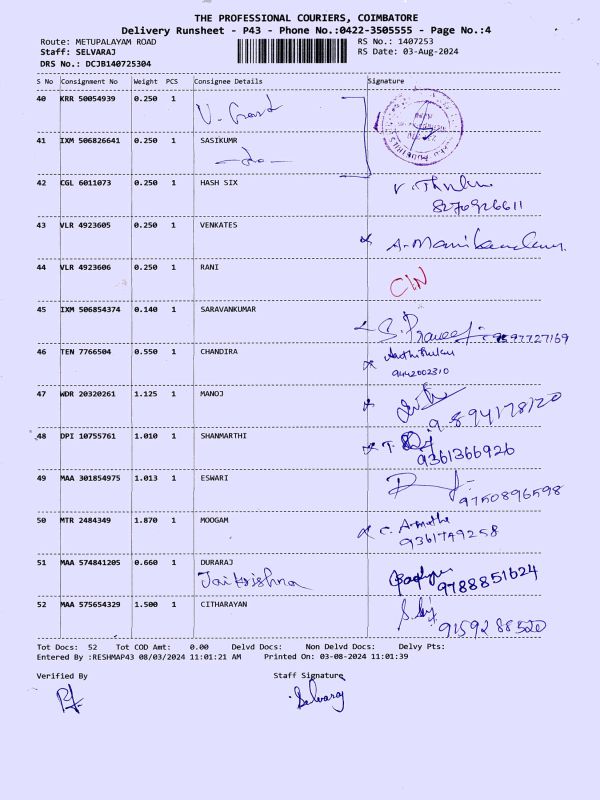 THE PROFESSIONAL COURIERS, COIMBATORE
Delivery Runsheet - P43 - Phone No.:0422-3505555 - Page No.:4
Route: METUPALAYAM ROAD RS No.: 1407253
Staff: SELVARAJ RS Date: 03-Aug-2024
DRS No.: DCJB140725304
S No Consignment No Weight PCS Consignee Details Signature
40 KRR 50054939 0.250 1
41 IXM 506826641 0.250 1 SASIKUMR
42 CGL 6011073 0.250 1 HASH SIX
8270926611
43 VLR 4923605 0.250 1 VENKATES
A. Manikandan
44 VLR 4923606 0.250 1 RANI
C/N
45 IXM 506854374 0.140 1 SARAVANKUMAR
46 TEN 7766504 0.550 1 CHANDIRA
9442002310
47 WDR 20320261 1.125 1 MANOJ
9894178120
48 DPI 10755761 1.010 1 SHANMARTHI
9361366926
49 MAA 301854975 1.013 1 ESWARI
9750896598
50 MTR 2484349 1.870 1 MOOGAM
9361749258
51 MAA 574841205 0.660 1 DURARAJ
Jaikrishna 9788851624
52 MAA 575654329 1.500 1 CITHARAYAN
9159288520
Tot Docs: 52 Tot COD Amt: 0.00 Delvd Docs: Non Delvd Docs: Delvy Pts:
Entered By :RESHMAP43 08/03/2024 11:01:21 AM Printed On: 03-08-2024 11:01:39
Verified By Staff Signature
Selvaraj